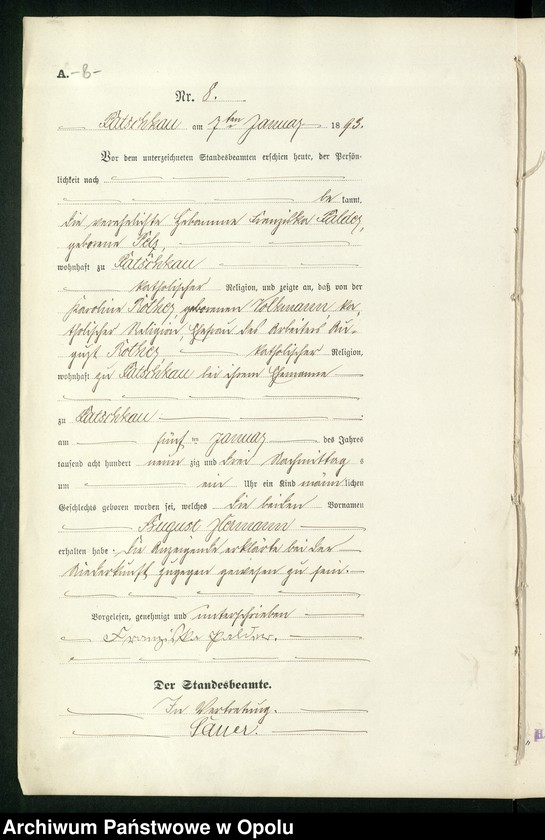 A. -8-
Nr. 8.
Patschkau am 7ten Januar 1893.
Vor dem unterzeichneten Standesbeamten erschien heute, der Persön-
lichkeit nach
be kannt,
die verehelichte Hebamme Franziska Palder,
geborene Pelz,
wohnhaft zu Patschkau
katholischer Religion, und zeigte an, daß von der
Karoline Rother, geborenen Volkmann, ka-
tholischer Religion Ehefrau des Arbeiters Au-
gust Rother, katholischer Religion,
wohnhaft zu Patschkau bei ihrem Ehemanne
zu Patschkau
am fünften Januar des Jahres
tausend acht hundert neun zig und drei Nachmittags
um ein Uhr ein Kind männlichen
Geschlechts geboren worden sei, welches die beiden Vornamen
August Hermann
erhalten habe. Die Anzeigende erklärte bei der
Niederkunft zugegen gewesen zu sein.
Vorgelesen, genehmigt und unterschrieben
Franziska Palder.
Der Standesbeamte.
In Vertretung.
Sauer.
Archiwum Państwowe w Opolu